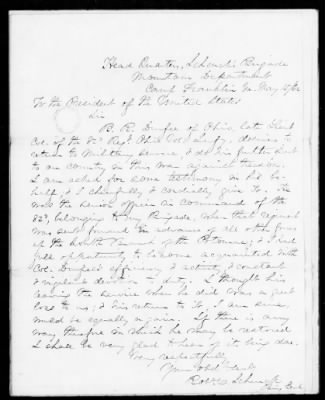 Head Quarters, Schenck's Brigade
Mountain Department
Camp Franklin Va May 15/62
To the President of the United States
Sir
B. R. Durfee of Ohio, late Lieut
Col. of the 82 Regt. Ohio Vol. Infy. desires to
return to Military service, & do his further part
to our country in this war against treason.
I am asked for some testimony in his be-
half, & I cheerfully & cordially give it. He
was the senior officer in command of the
82d, belonging to my Brigade, when that regiment
was sent forward in advance of all other forces
up the South Branch of the Potomac; & I had
full opportunity to become acquainted with
Col. Durfee's efficiency & activity & constant
& vigilant devotion to duty. I thought his
leaving the service when he did was a great
loss to us; & his return to it, I am sure,
would be equally a gain. If there is any
way therefore in which he may be restored
I shall be very glad to hear of its being done.
Very respectfully
Your obt Servt
Robt. C. Schenck
Brig. Genl.